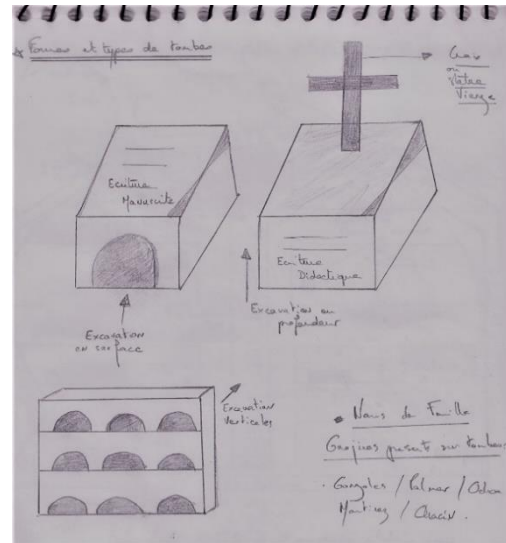 * Formes et types de tombes
Croix
ou
Vierge
Ecriture
Manuscrite
Ecriture
Didactique
Excavation
en surface
Excavation en
profondeur
Excavation
Verticales
Noms de Famille
Guajiros présents sur tombeaux
. Gonzales / Palmar /
Martinez / Chacin .